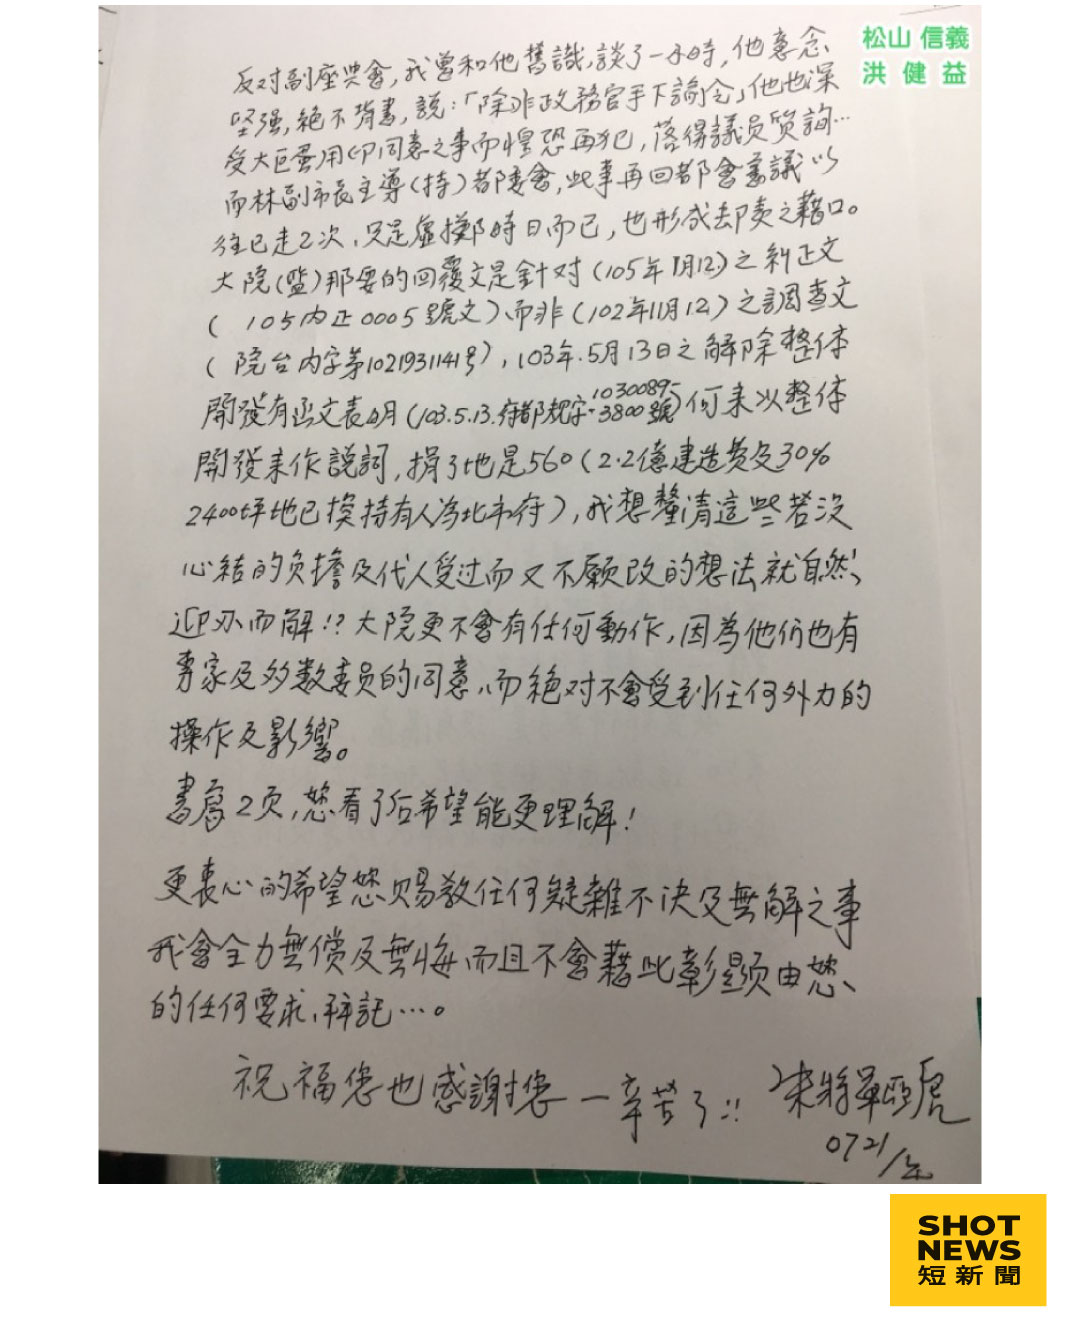 松山 信義
洪 健 益
反对副座與會，我曾和他舊識，談了一小時，他意念
坚强，絕不背書，說：「除非政務官手下諭令」他也深
受大巨蛋用印同意之事而惶恐再犯，落得議員質詢…
而林副市長主導（持）都委會，此事再回都會審議以
往已走2次、只是虛擲時日而已，也形成卸責之藉口。
大院（監）那要的回覆文是針对（105年1月12.）之糾正文
（ 105內正0005號文）而非（102年11月12）之調查文
（院台內字第1021931141号），103年.5月13日之解除整体
開發有函文表明（103.5.13.府都規字.10300895-3800號）何来以整体
開發来作説詞，捐了地是560（2.2億建造費及30%
2400坪地已換持有人為北市府），我想釐清這些若没
心結的负擔及代人受过而又不願改的想法就自然、
迎刃而解!?大院更不會有任何動作，因為他们也有
專家及多數委員的同意、而絕对不會受到任何外力的
操作及影響。
書寫2页，您看了后希望能更理解！
更衷心的希望您賜教任何疑難不决及無解之事
我會全力無償及無悔而且不會藉此彰顯由您、
的任何要求、拜託…。
祝福您也感謝您－辛苦了!!
將軍亞虎
0721/
SHOT
NEWS
短新聞